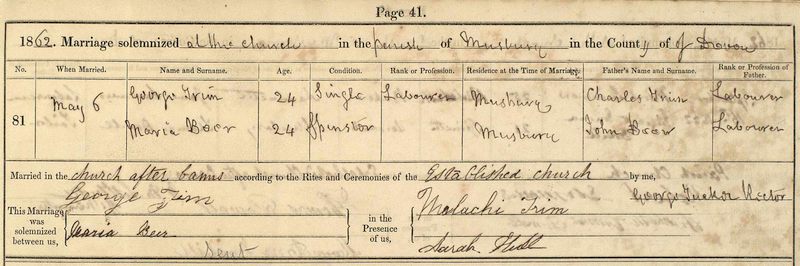 Page 41.
1862. Marriage solemnized at the church in the parish of Musbury in the County of Devon
No. When Married. Name and Surname. Age. Condition. Rank or Profession. Residence at the Time of Marriage. Father's Name and Surname. Rank or Profession of Father.
81 May 6 George Trim 24 Single Labourer Musbury Charles Trim Labourer
Maria Beer 24 Spinster Musbury John Beer Labourer
Married in the church after banns according to the Rites and Ceremonies of the Established church by me, George Tucker Rector
This Marriage was solemnized between us, George Trim Maria Beer in the Presence of us, Malachi Trim Sarah